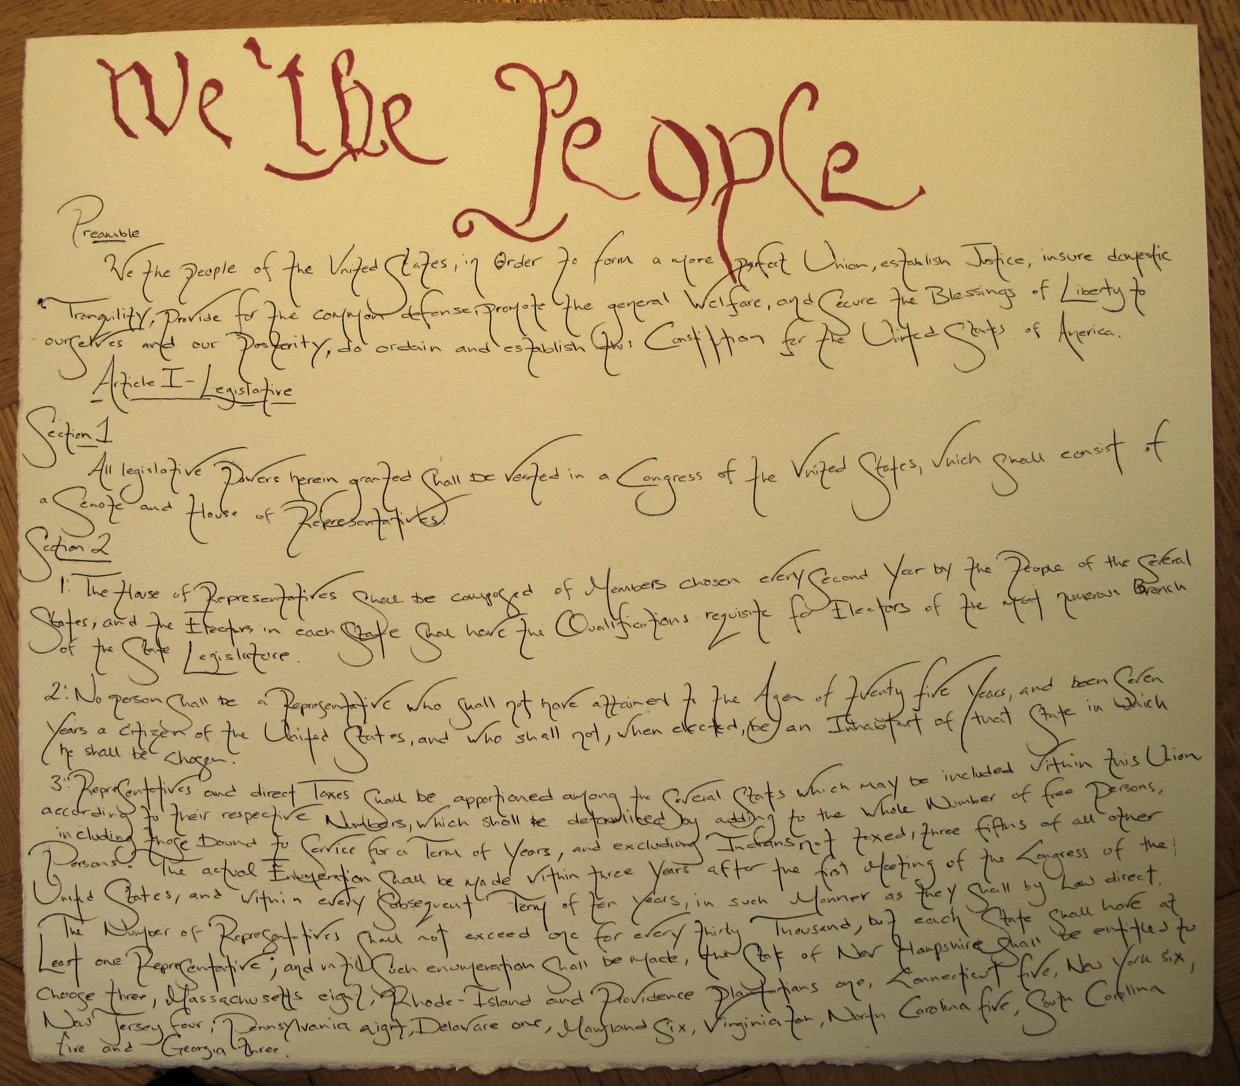 We the People
Preamble
We the people of the United States, in Order to form a more perfect Union, establish Justice, insure domestic
Tranquility, provide for the common defense, promote the general Welfare, and Secure the Blessings of Liberty to
ourselves and our Posterity, do ordain and establish this Constitution for the United States of America.
Article I - Legislative
Section 1
All legislative Powers herein granted Shall be vested in a Congress of the United States, which shall consist of
a Senate and House of Representatives.
Section 2
1: The House of Representatives Shall be composed of Members chosen every Second Year by the People of the Several
States, and the Electors in each State shall have the Qualifications requisite for Electors of the most numerous Branch
of the State Legislature.
2: No person Shall be a Representative who shall not have attained to the Age of twenty five Years, and been Seven
Years a Citizen of the United States, and who shall not, when elected, be an Inhabitant of that State in which
he shall be chosen.
3: Representatives and direct Taxes Shall be apportioned among the Several States which may be included within this Union
according to their respective Numbers, which shall be determined by adding to the whole Number of free Persons,
including those Bound to Service for a Term of Years, and excluding Indians not taxed, three fifths of all other
Persons. The actual Enumeration Shall be made within three Years after the first Meeting of the Congress of the
United States, and within every Subsequent Term of ten Years, in such Manner as they Shall by Law direct.
The Number of Representatives Shall not exceed one for every thirty Thousand, but each State Shall have at
Least one Representative; and until Such enumeration Shall be made, the State of New Hampshire Shall be entitled to
choose three, Massachusetts eight, Rhode-Island and Providence Plantations one, Connecticut five, New York six,
New Jersey four, Pennsylvania eight, Delaware one, Maryland Six, Virginia ten, North Carolina five, South Carolina
five and Georgia three.